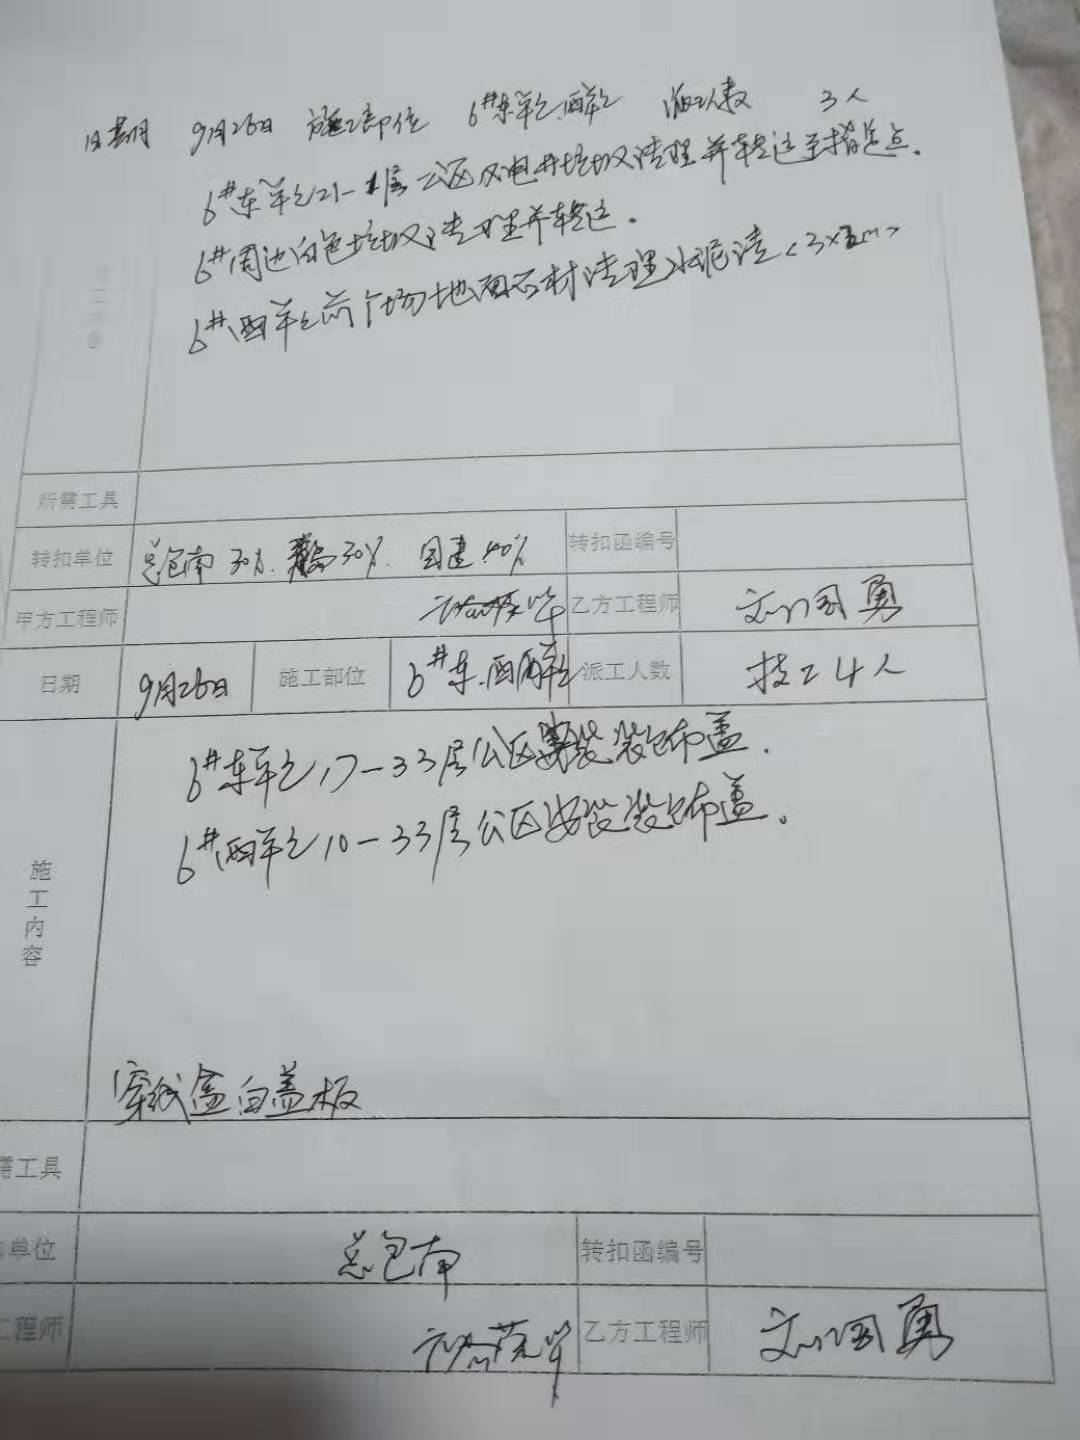 日期 9月26日 施工部位 6#东单元.西单元 派工人数 3人
6#东单元21-1层公区及电井垃圾清理并转运至指定点.
6#周边白色垃圾清理并转运.
6#西单元前广场地面石材清理水泥渣
所需工具
转扣单位 总包南30%. 30%. 国建40% 转扣函编号
甲方工程师 乙方工程师 刘国勇
日期 9月26日 施工部位 6#东.西单元 派工人数 技工4人
6#东单元17-33层公区安装装饰盖.
6#西单元10-33层公区安装装饰盖.
施工内容
穿线盒白盖板
需工具
单位 总包南 转扣函编号
工程师 乙方工程师 刘国勇